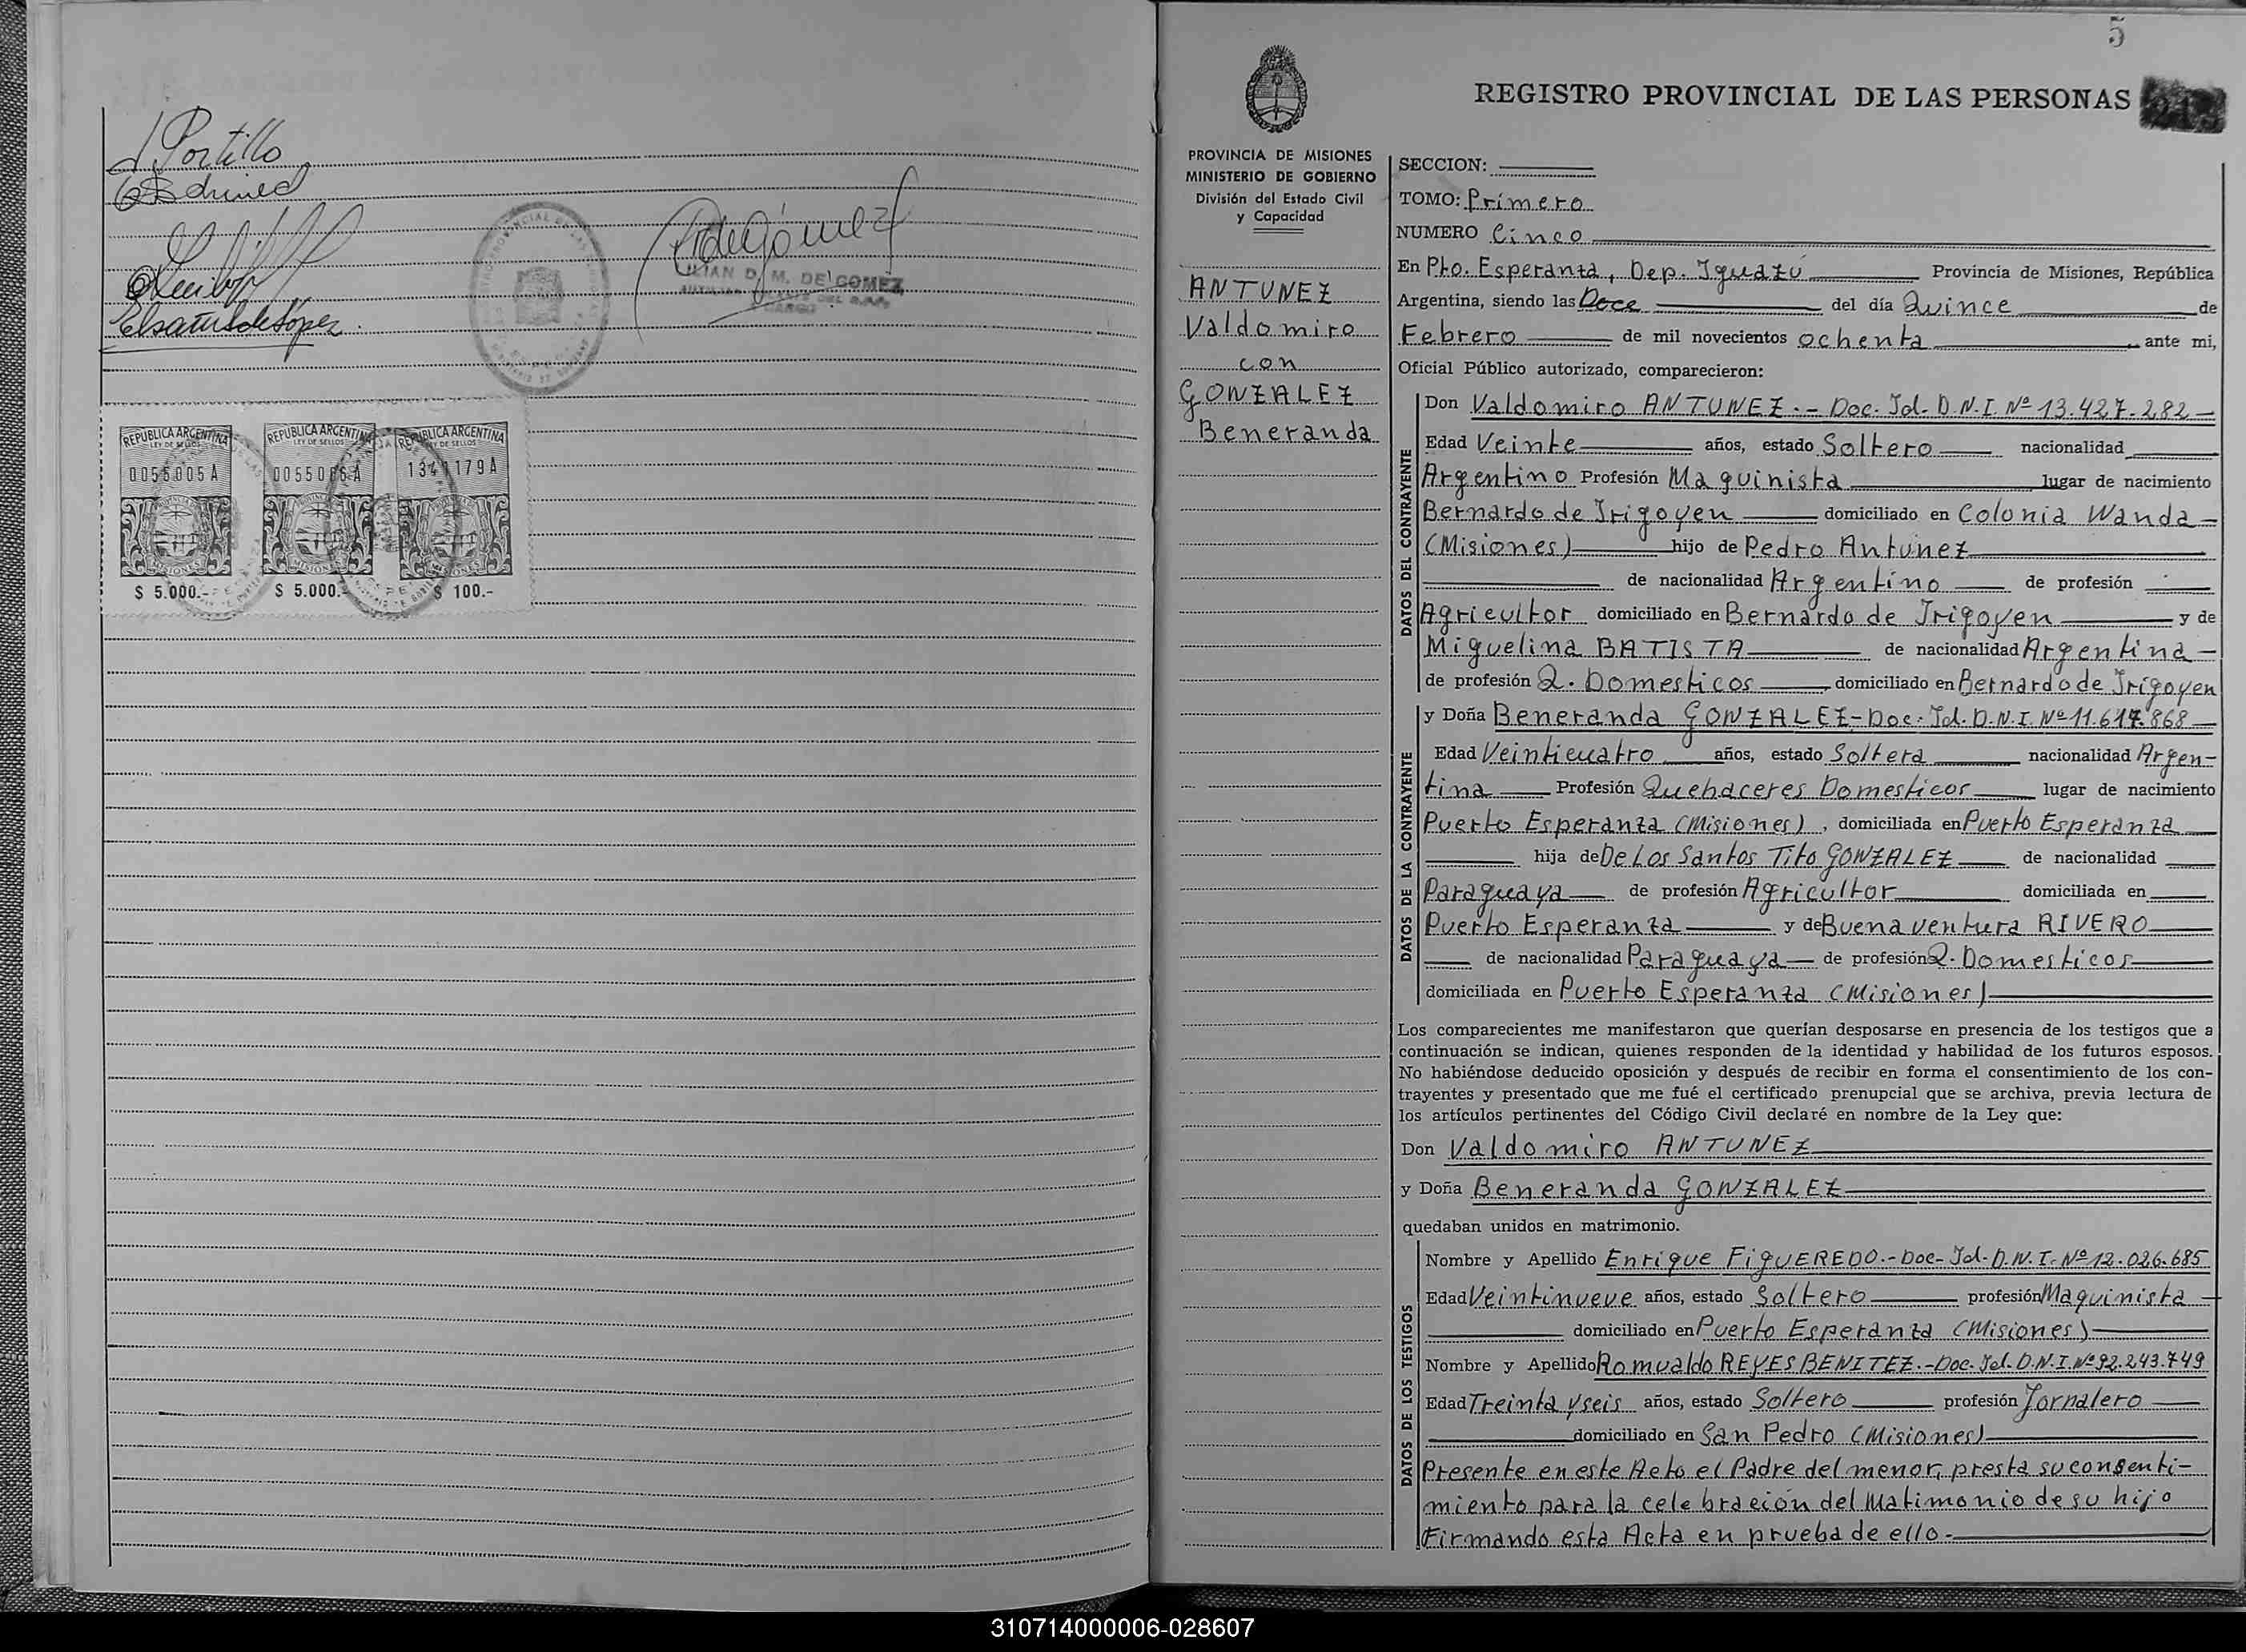 Portillo
Elsa de López
LILIAN D. M. DE GOMEZ
REPUBLICA ARGENTINA
LEY DE SELLOS
0055005 A
MISIONES
$ 5.000.-
REPUBLICA ARGENTINA
LEY DE SELLOS
0055006 A
MISIONES
$ 5.000.-
REPUBLICA ARGENTINA
LEY DE SELLOS
179 A
MISIONES
$ 100.-
5
REGISTRO PROVINCIAL DE LAS PERSONAS
PROVINCIA DE MISIONES
MINISTERIO DE GOBIERNO
División del Estado Civil
y Capacidad
ANTUNEZ
Valdomiro
con
GONZALEZ
Beneranda
SECCION:
TOMO: Primero
NUMERO Cinco
En Pto. Esperanza, Dep. Iguazú Provincia de Misiones, República
Argentina, siendo las Doce del día Quince de
Febrero de mil novecientos ochenta ante mi,
Oficial Público autorizado, comparecieron:
DATOS DEL CONTRAYENTE
Don Valdomiro ANTUNEZ.- Doc. Id. D.N.I. Nº 13.427.282
Edad Veinte años, estado Soltero nacionalidad
Argentino Profesión Maquinista lugar de nacimiento
Bernardo de Irigoyen domiciliado en Colonia Wanda
(Misiones) hijo de Pedro Antunez
de nacionalidad Argentino de profesión
Agricultor domiciliado en Bernardo de Irigoyen y de
Miguelina BATISTA de nacionalidad Argentina
de profesión Q. Domesticos domiciliado en Bernardo de Irigoyen
DATOS DE LA CONTRAYENTE
y Doña Beneranda GONZALEZ- Doc. Id. D.N.I. Nº 11.617.868
Edad Veinticuatro años, estado Soltera nacionalidad Argen-
tina Profesión Quehaceres Domesticos lugar de nacimiento
Puerto Esperanza (Misiones), domiciliada en Puerto Esperanza
hija de De Los Santos Tito GONZALEZ de nacionalidad
Paraguaya de profesión Agricultor domiciliada en
Puerto Esperanza y de Buenaventura RIVERO
de nacionalidad Paraguaya de profesión Q. Domesticos
domiciliada en Puerto Esperanza (Misiones)
Los comparecientes me manifestaron que querían desposarse en presencia de los testigos que a
continuación se indican, quienes responden de la identidad y habilidad de los futuros esposos.
No habiéndose deducido oposición y después de recibir en forma el consentimiento de los con-
trayentes y presentado que me fué el certificado prenupcial que se archiva, previa lectura de
los artículos pertinentes del Código Civil declaré en nombre de la Ley que:
Don Valdomiro ANTUNEZ
y Doña Beneranda GONZALEZ
quedaban unidos en matrimonio.
DATOS DE LOS TESTIGOS
Nombre y Apellido Enrique FIGUEREDO.- Doc- Id- D.N.I. Nº 12.026.685
Edad Veintinueve años, estado Soltero profesión Maquinista
domiciliado en Puerto Esperanza (Misiones)
Nombre y Apellido Romualdo REYES BENITEZ.- Doc. Id. D.N.I. Nº 92.243.749
Edad Treinta y seis años, estado Soltero profesión Jornalero
domiciliado en San Pedro (Misiones)
Presente en este Acto el Padre del menor, presta su consenti-
miento para la celebración del Matimonio de su hijo
Firmando esta Acta en prueba de ello.-
310714000006-028607